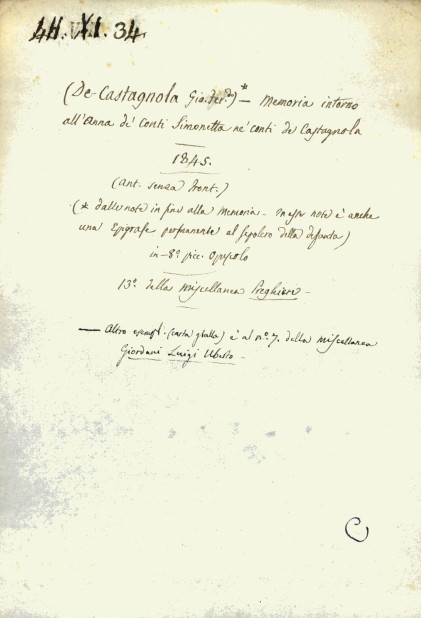 44. VI. 34.
(De-Castagnola Gio. Ferd.)* — Memoria intorno
all'Anna de' Conti Simonetta ne' conti de Castagnola
1845.
(ant. senza front.)
(* dalle note in fine alla Memoria. In esse note è anche
una Epigrafe al sepolcro della defunta)
in-8.º picc. Opuscolo
13.º della Miscellanea Preghiere —
— Altro esempl. (carta gialla) è al nº. 7. della Miscellanea
Giordani Luigi Uberto —
C